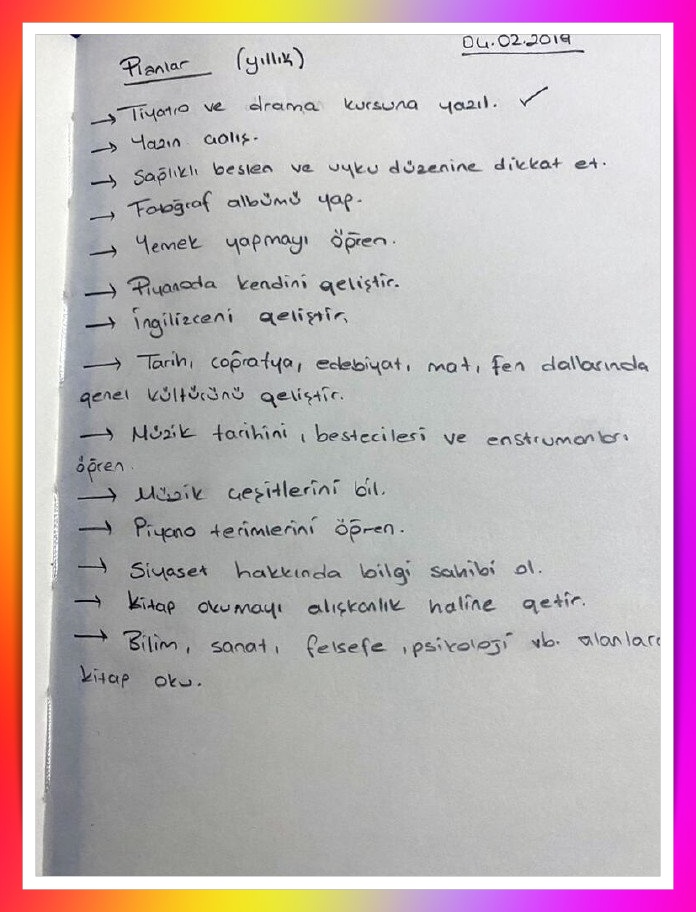 04.02.2019
Planlar (yıllık)
→ Tiyatro ve drama kursuna yazıl. ✓
→ Yazın çalış.
→ Sağlıklı beslen ve uyku düzenine dikkat et.
→ Fotoğraf albümü yap.
→ Yemek yapmayı öğren.
→ Piyanoda kendini geliştir.
→ İngilizceni geliştir.
→ Tarih, coğrafya, edebiyat, mat, fen dallarında
genel kültürünü geliştir.
→ Müzik tarihini, bestecileri ve enstrumanları
öğren.
→ Müzik çeşitlerini bil.
→ Piyano terimlerini öğren.
→ Siyaset hakkında bilgi sahibi ol.
→ Kitap okumayı alışkanlık haline getir.
→ Bilim, sanat, felsefe, psikoloji vb.
kitap oku.